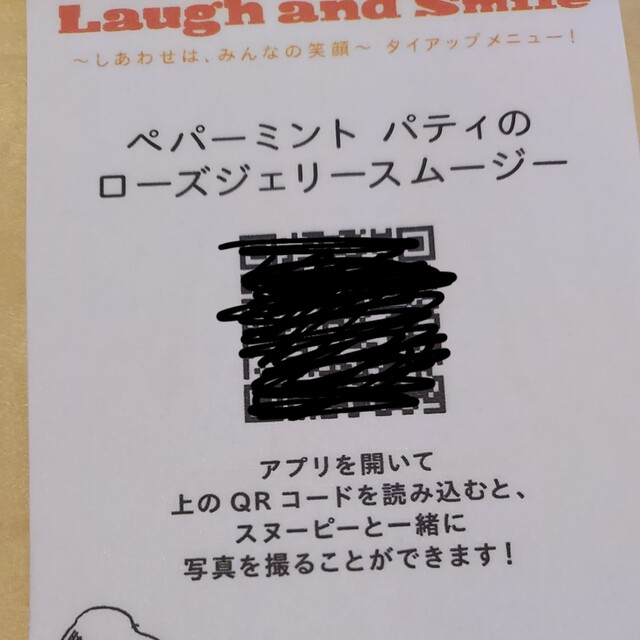 Laugh and Smile
～しあわせは、みんなの笑顔～ タイアップメニュー!
ペパーミント パティの
ローズジェリースムージー
アプリを開いて
上のQRコードを読み込むと、
スヌーピーと一緒に
写真を撮ることができます!